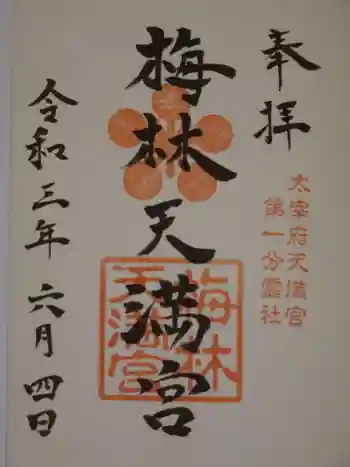 奉拝
太宰府天満宮
第一分霊社
梅林天満宮
梅林
天満宮
令和三年六月四日